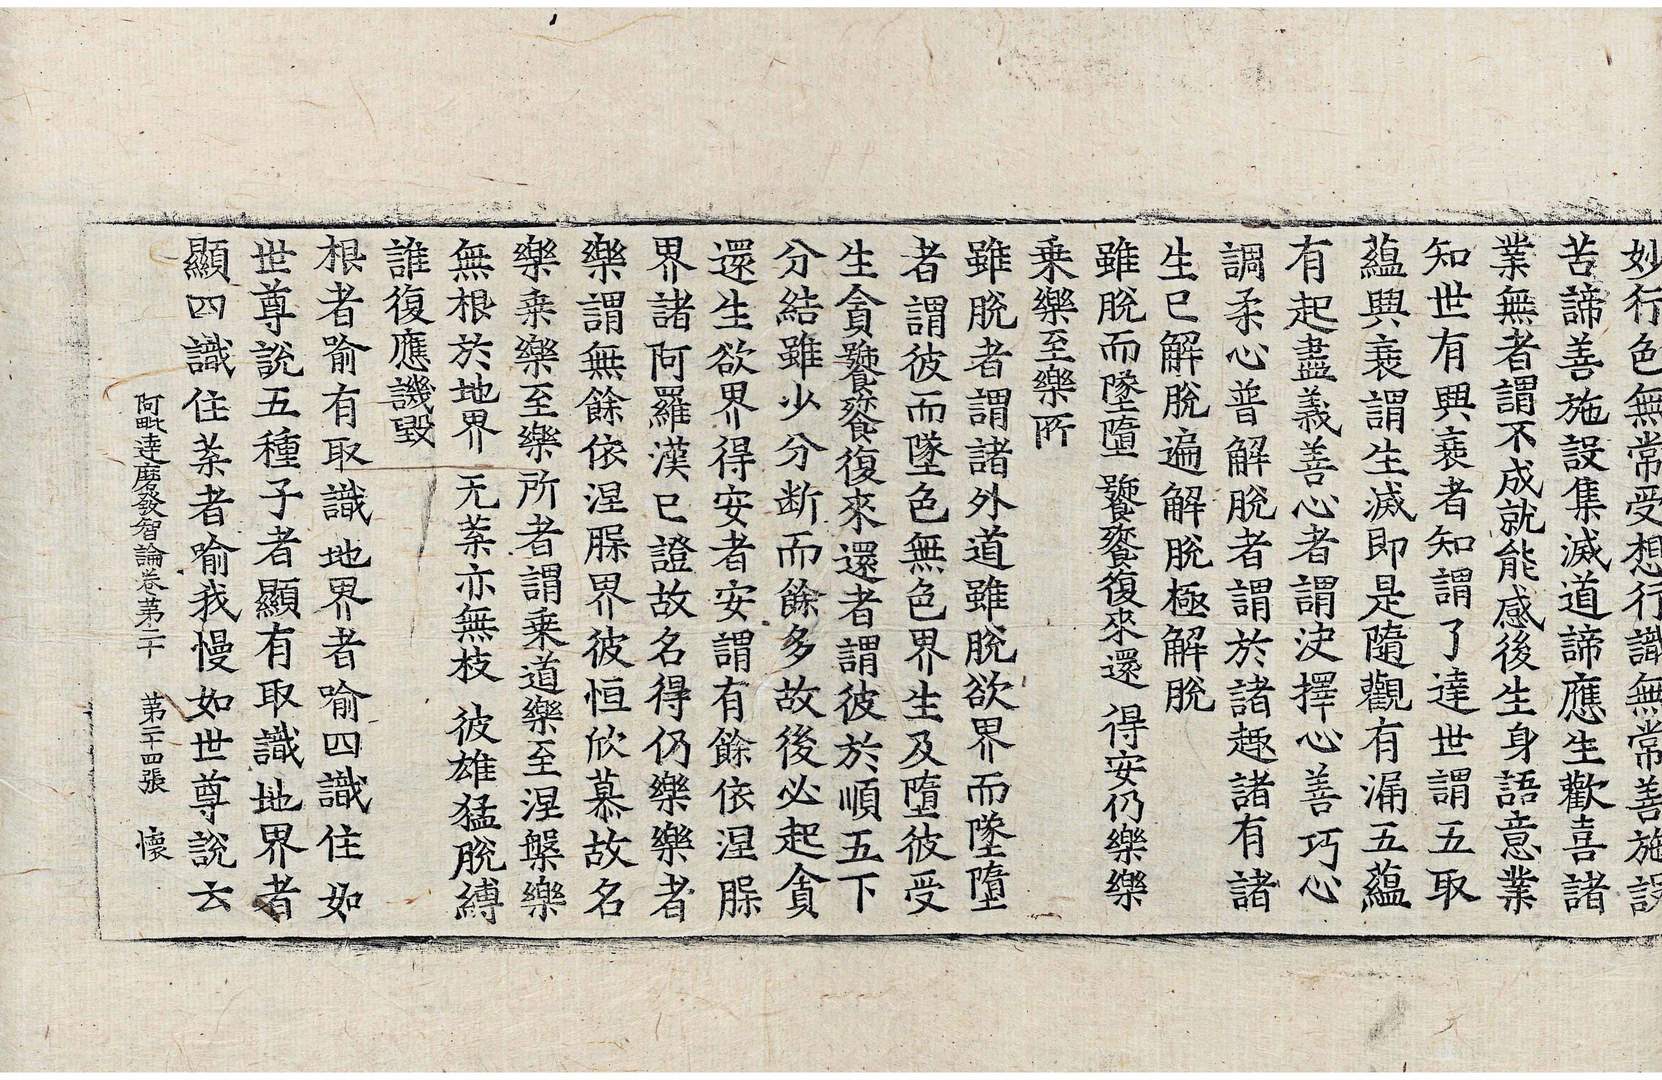 妙行色無常受想行識無常善施設
苦諦善施設集滅道諦應生歡喜諸
業無者謂不成就能感後生身語意業
知世有興衰者知謂了達世謂五取
蘊興衰謂生滅即是隨觀有漏五蘊
有起盡義善心者謂決擇心善巧心
調柔心普解脫者謂於諸趣諸有諸
生已解脫遍解脫極解脫
雖脫而墜墮 饕餮復來還 得安仍樂樂
乗樂至樂所
雖脫者謂諸外道雖脫欲界而墜墮
者謂彼而墜色無色界生及墮彼受
生貪饕餮復來還者謂彼於順五下
分結雖少分断而餘多故後必起貪
還生欲界得安者安謂有餘依涅槃
界諸阿羅漢已證故名得仍樂樂者
樂謂無餘依涅槃界彼恒欣慕故名
樂乗樂至樂所者謂乗道樂至涅槃樂
無根於地界 无葉亦無枝 彼雄猛脫縛
誰復應譏毀
根者喻有取識地界者喻四識住如
世尊說五種子者顯有取識地界者
顯四識住葉者喻我慢如世尊說去
阿毗達磨發智論卷第二十 第二十四張 懷